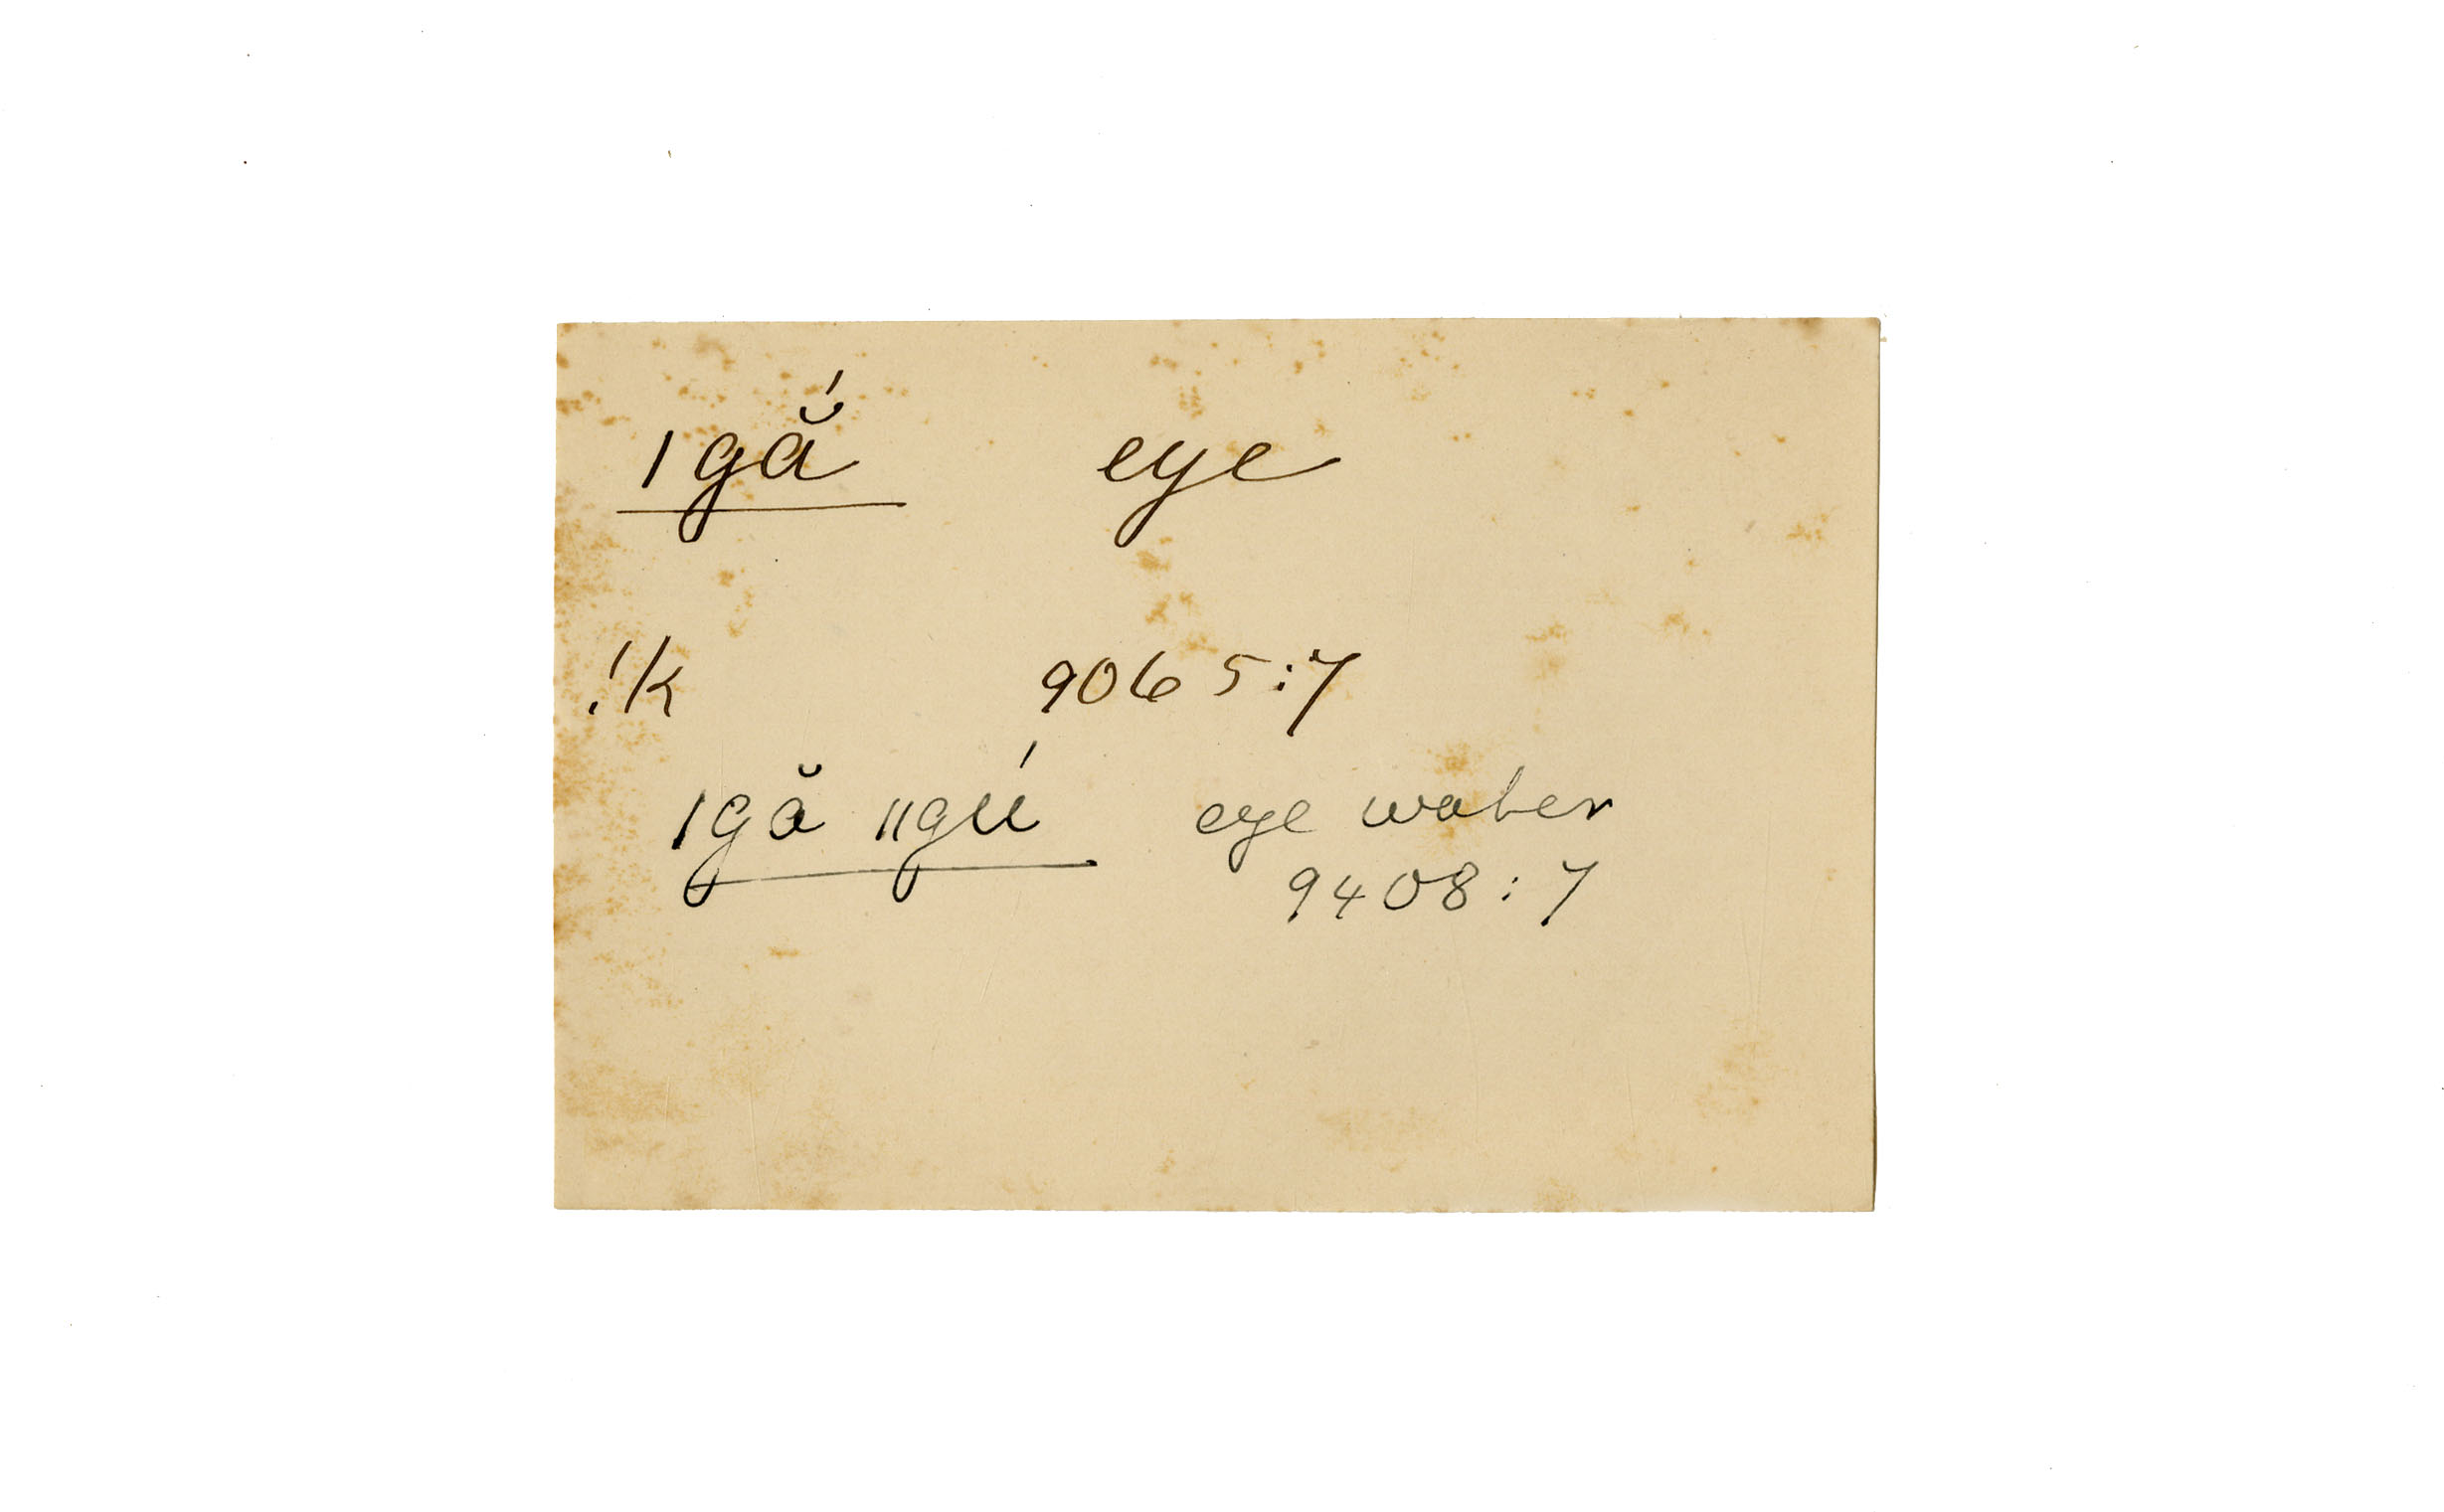 ǀgắ eye
!k 9065:7
ǀgă ǁgú eye water
9408:7